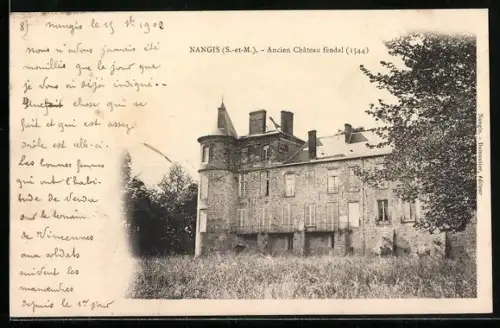 8/ Nangis le 15 7bre 1902
NANGIS (S.-et-M.). - Ancien Château féodal (1544)
nous n'avons jamais été
mouillés que le jour que
je vous ai déjà indiqué. -
chose qui se
fait et qui est assez
drôle est celle-ci.
Les bonnes femmes
qui ont l'habi-
tude de vendre
sur le terrain
de Vincennes
aux soldats
suivent les
manœuvres
depuis le 1er jour
Nangis. - éditeur